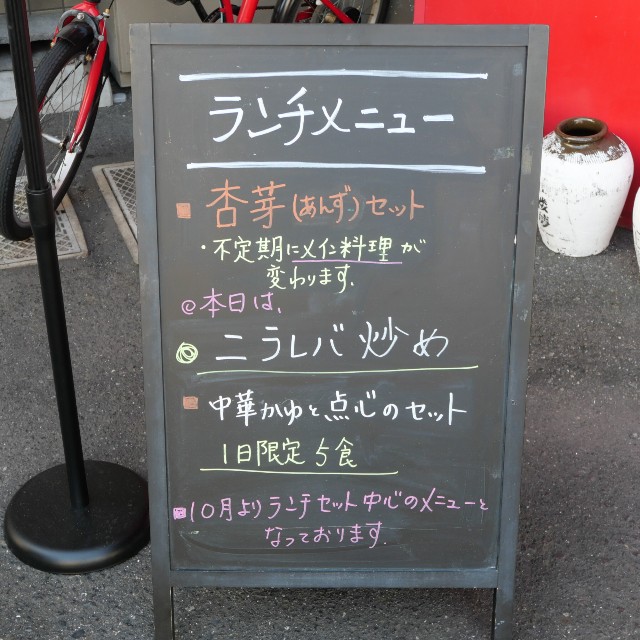 ランチメニュー
■ 杏芽(あんず)セット
・不定期にメイン料理が
変わります.
@本日は、
◎ ニラレバ炒め
■ 中華かゆと点心のセット
1日限定 5食
■10月よりランチセット中心のメニューと
なっております.